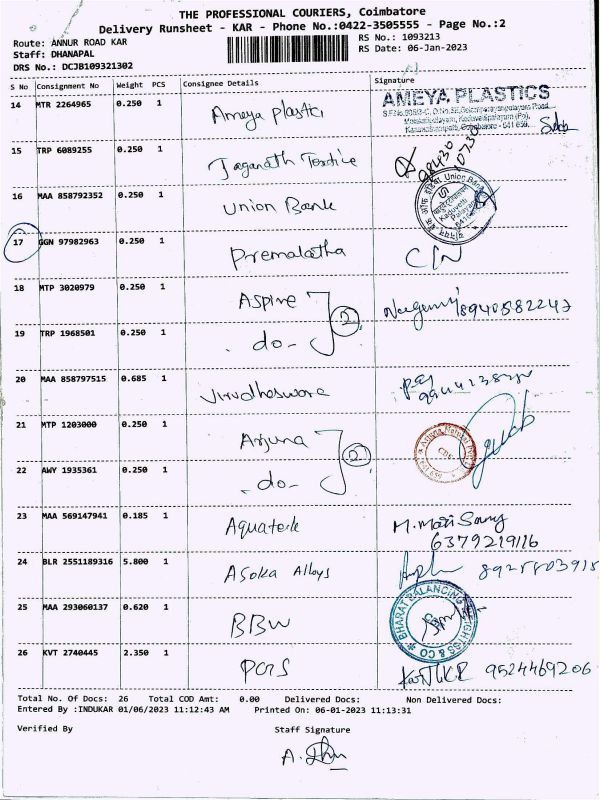 THE PROFESSIONAL COURIERS, Coimbatore
Delivery Runsheet - KAR - Phone No.:0422-3505555 - Page No.:2
Route: ANNUR ROAD KAR
RS No.: 1093213
Staff: DHANAPAL
RS Date: 06-Jan-2023
DRS No.: DCJB109321302
S No Consignment No Weight PCS Consignee Details Signature
14 MTR 2264965 0.250 1 Ameya plastics
AMEYA PLASTICS
15 TRP 6089255 0.250 1 Jaganath Textile
98436
10730
16 MAA 858792352 0.250 1 Union Bank
Union Bank
17 GGN 97982963 0.250 1 Premalatha C/N
18 MTP 3020979 0.250 1 Aspire 2 8940582247
19 TRP 1968501 0.250 1 - do -
20 MAA 858797515 0.685 1
21 MTP 1203000 0.250 1 Arjuna 2
22 AWY 1935361 0.250 1 - do -
23 MAA 569147941 0.185 1 Aquatek M. Mari Samy
6379219116
24 BLR 2551189316 5.800 1 Asoka Alloys
25 MAA 293060137 0.620 1 BBW
BHARAT BALANCING WEIGHTSS & CO
26 KVT 2740445 2.350 1 PGS 9524469206
Total No. Of Docs: 26 Total COD Amt: 0.00 Delivered Docs: Non Delivered Docs:
Entered By :INDUKAR 01/06/2023 11:12:43 AM Printed On: 06-01-2023 11:13:31
Verified By Staff Signature